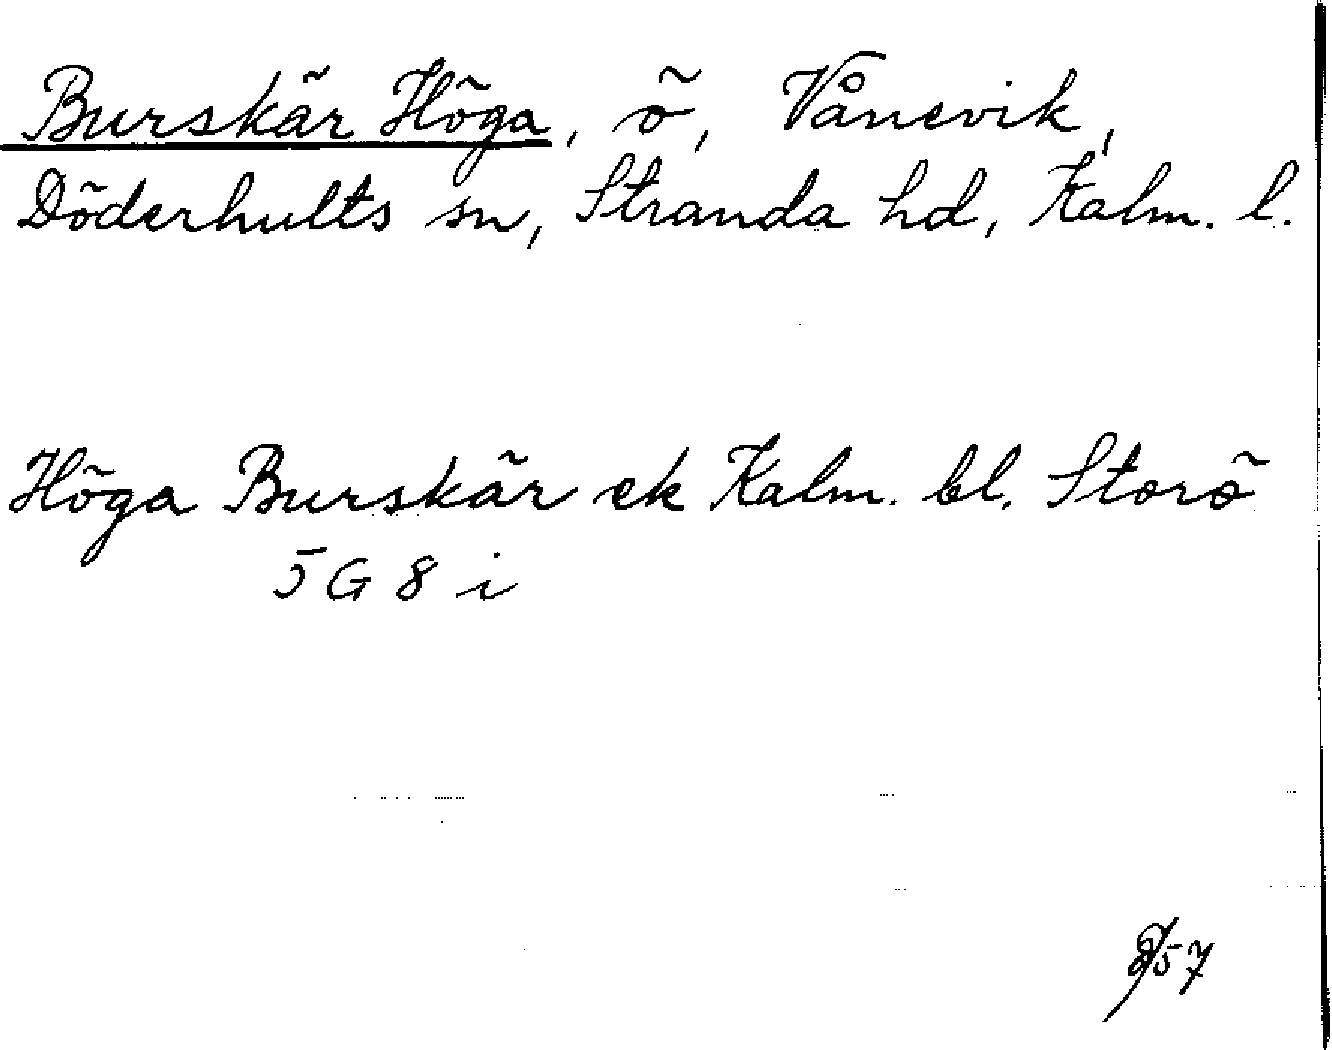 Burskär Höga, ö, Vånevik,
Döderhults sn, Stranda hd, Kalm. l.
Höga Burskär ek Kalm. bl. Storö
5 G 8 i
57